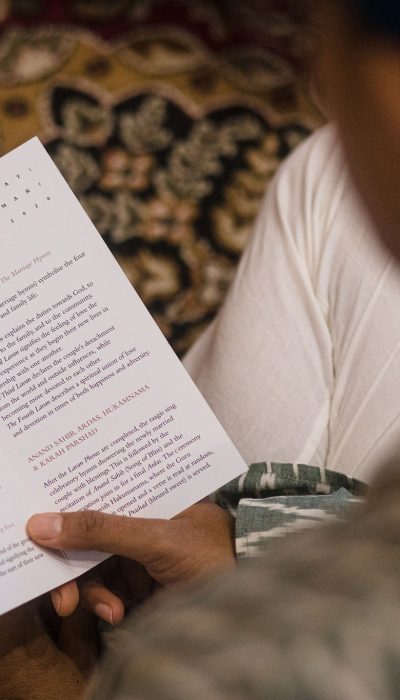 A T I
M A R I
2 0 2 0
The Marriage Hymn
marriage hymns) symbolise the four
and family life.
explains the duties towards God, to
to the family, and to the community.
Lavan signifies the feeling of love the
experience as they begin their new lives in
with one another.
Third Lavan declares the couple's detachment
from the world and outside influences, while
becoming more devoted to each other.
The Fourth Lavan describes a spiritual union of love
and devotion in times of both happiness and adversity.
ANAND SAHIB, ARDAS, HUKAMNAMA
& KARAH PARSHAD
After the Lavan Pheras are completed, the raagis sing
celebratory hymns showering the newly married
couple with blessings. This is followed by the
recitation of Anand Sahib (Song of Bliss) and the
joins in for a final Ardas. The ceremony
with Hukamnama, where the Guru
opened and a verse is read at random,
Prashad (blessed sweet) is served.
end of the
signifying the
the start of their new